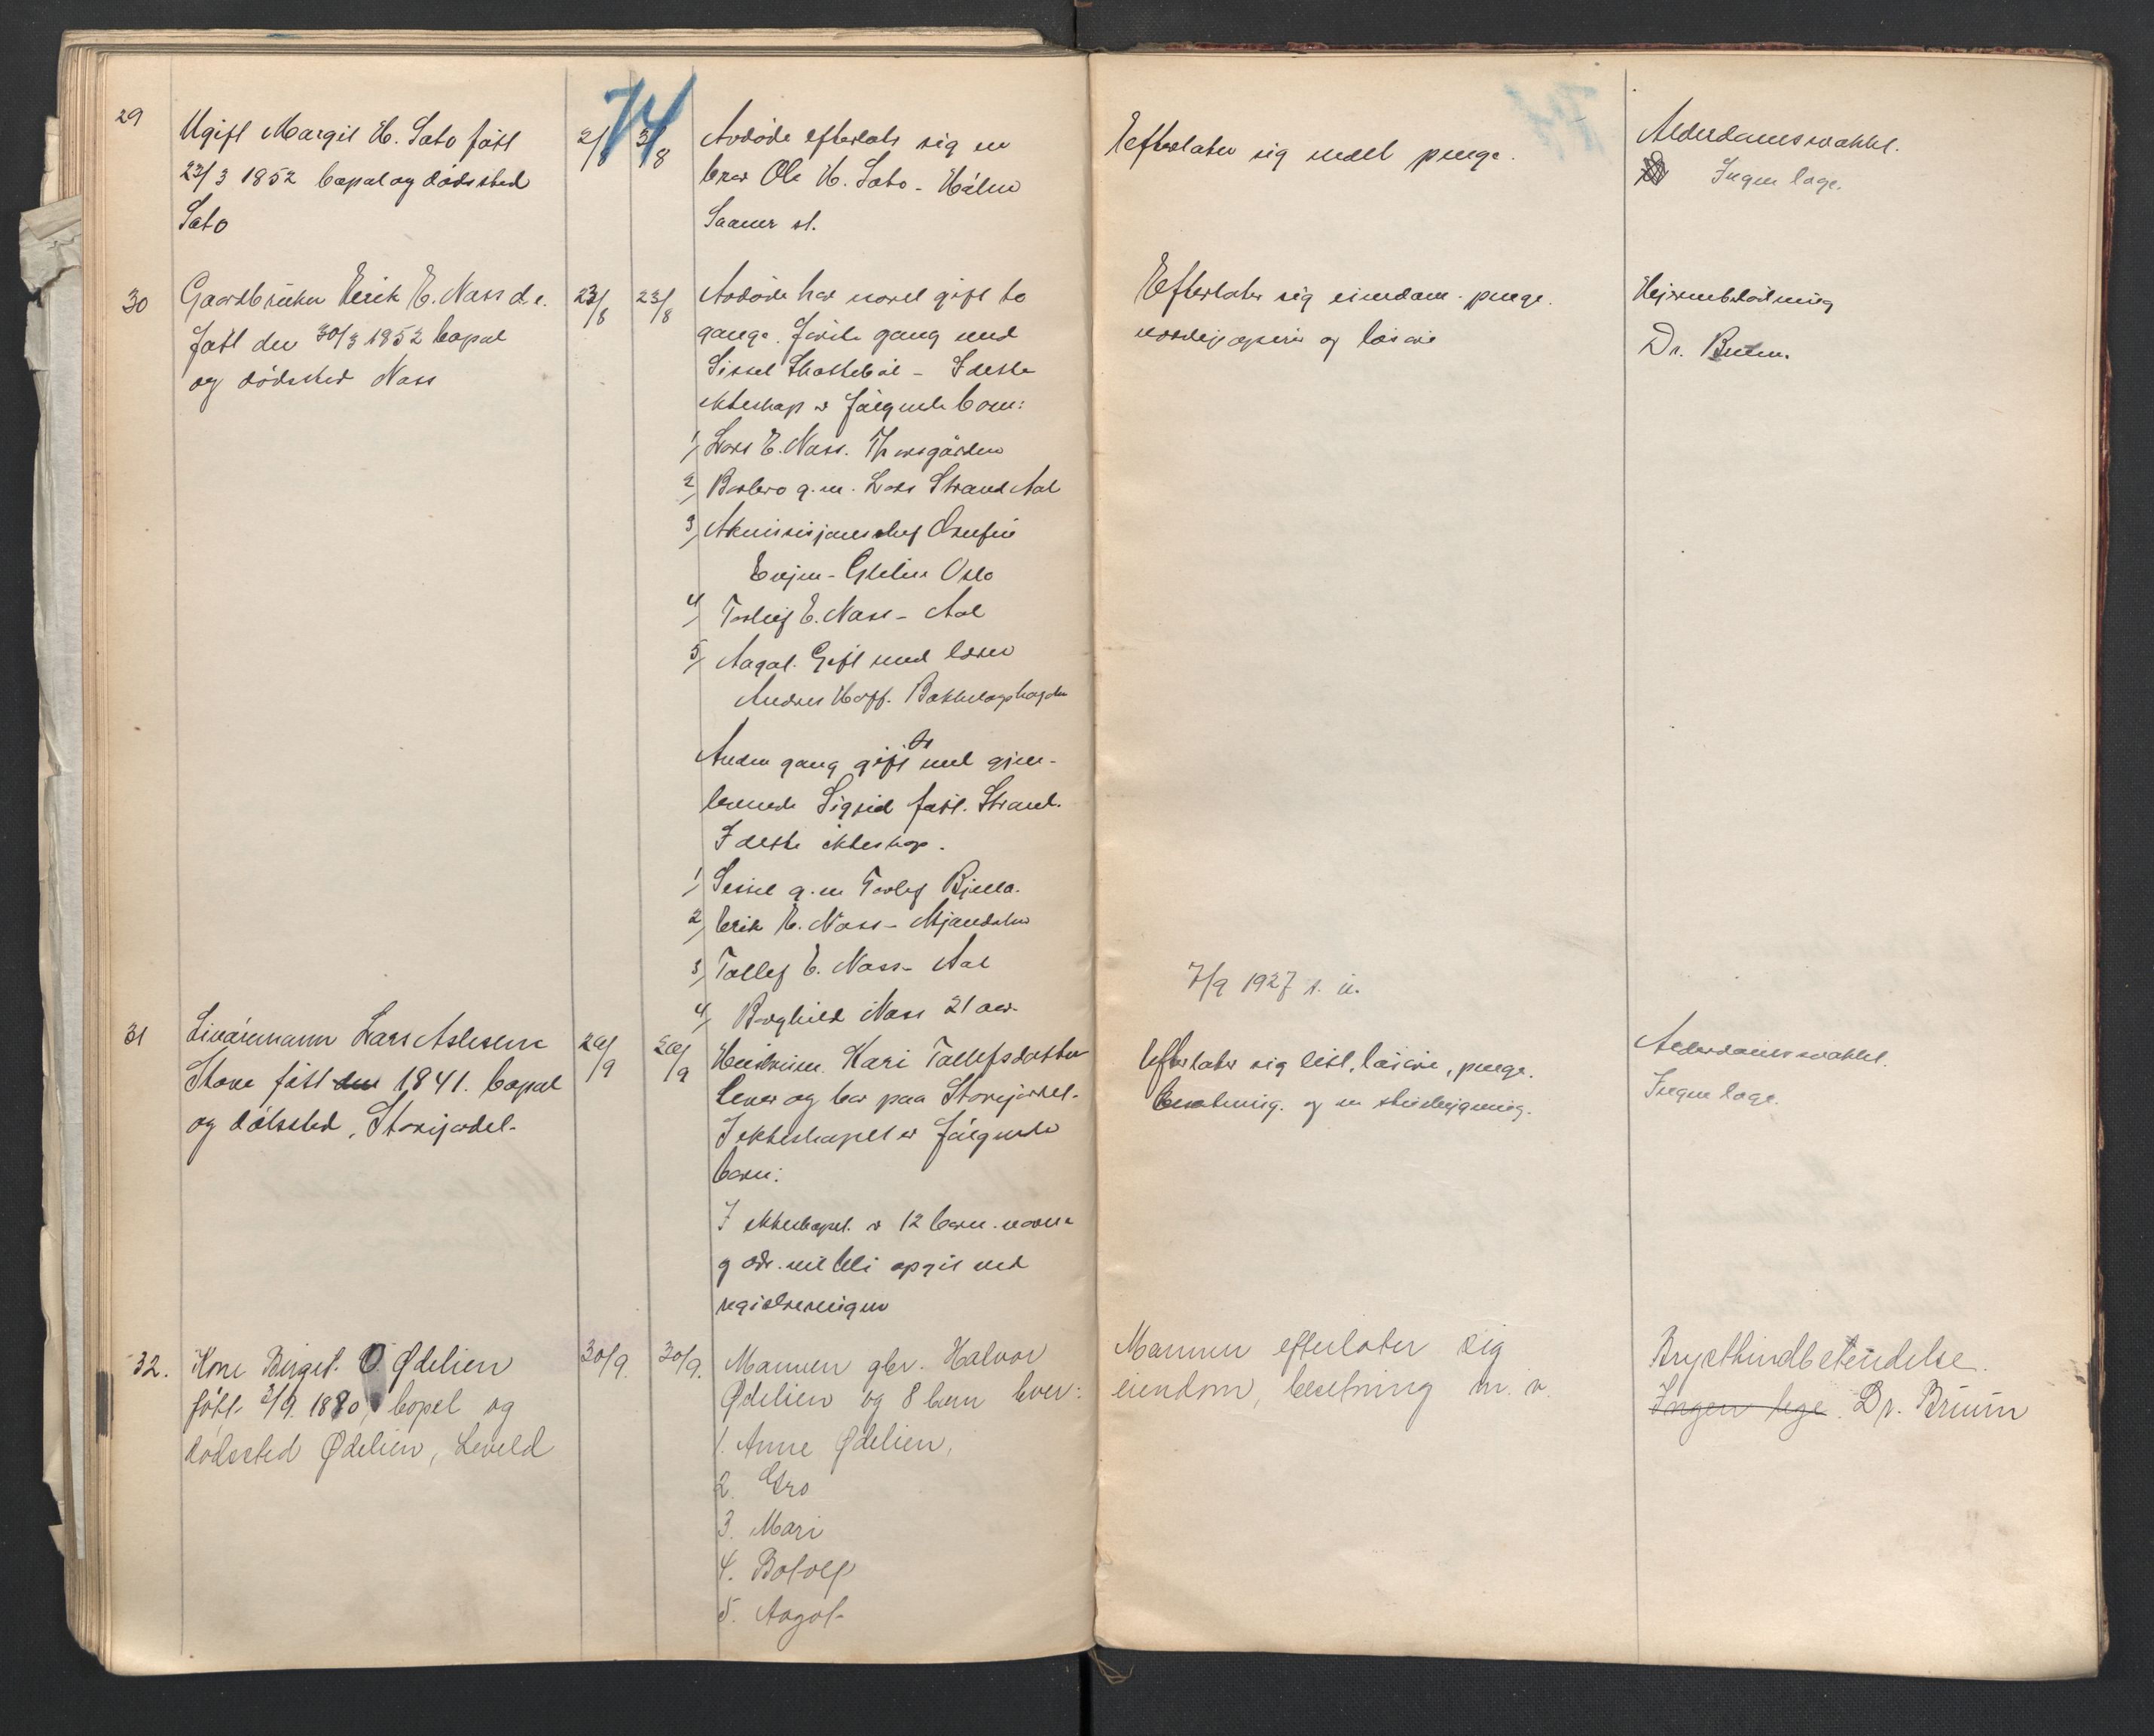 74
29
Ugift Margit H. Sato født
23/3 1852 bopal og dødssted
Sato
2/8
3/8
Avdøde efterlats sig en
bror Ole H. Sato - Hálmo
Saamer st.
Efterlater sig endel penge.
Alderdomssvakhet.
Ingen læge.
30
Gaardbruker Eirik E. Nass d.e.
født den 30/3 1852 bopal
og dødssted Nass
23/8
23/8
Avdøde har været gift to
gange. Første gang med
Sissel Skattebøl - I dette
ekteskap er følgende born:
1/ Lars E. Nass. Thorsgården
2/ Barbro g.m. Lars Strand Aal
3/ 
Oslo
4/ Torleif E. Nass - Aal
5/ Aagot. Gift med lærer
Andres Hoff.
Anden gang gift er med gjen-
levende Sigrid født. Strand.
I dette ekteskap.
1/ Sissel g.m Torleif Bjella.
2/ Erik E. Nass - Mjøndalen
3/ Tollef E. Nass - Aal
4/ Borghild Nass 21 aar
Efterlater sig eiendom. penge.
verdipapirer og løsøre
Hjerneblødning
Dr. Bruun.
7/9 1927 s. u.
31
Livøremann Lars Aslesen
Stave født den 1841. bopal
og dødssted, Storejordet.
20/9
20/9
Kari Tollefsdatter
lever og bor paa Storejordet.
I ekteskapet er følgende
barn:
I ekteskapet er 12 barn. navne
og adr. vil bli opgit ved
registreringen
Efterlater sig litt, løsøre, penge.
Besetning. og en
Alderdomssvakhet.
Ingen læge.
32.
Kone Birget. O. Ødelien
født 3/9. 1880, bopel og
dødssted Ødelien, Leveld
30/9.
30/9.
Mannen gbr. Halvor
Ødelien og 8 barn lever:
1. Anne Ødelien,
2. Gro
3. Mari
4. Botolf
5. Aagot
Mannen efterlater sig
eiendom, besetning m. v.
Brysthindbetendelse.
Ingen læge. Dr. Bruun